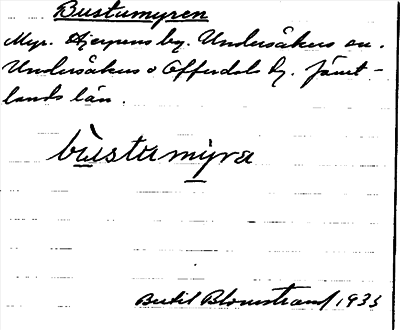 Bustumyren
Myr. Hjerpens by. Undersåkers sn.
Undersåkers o Offerdals tg. Jämt-
lands län.
bùstumyra
Bertil Blomstrand 1935